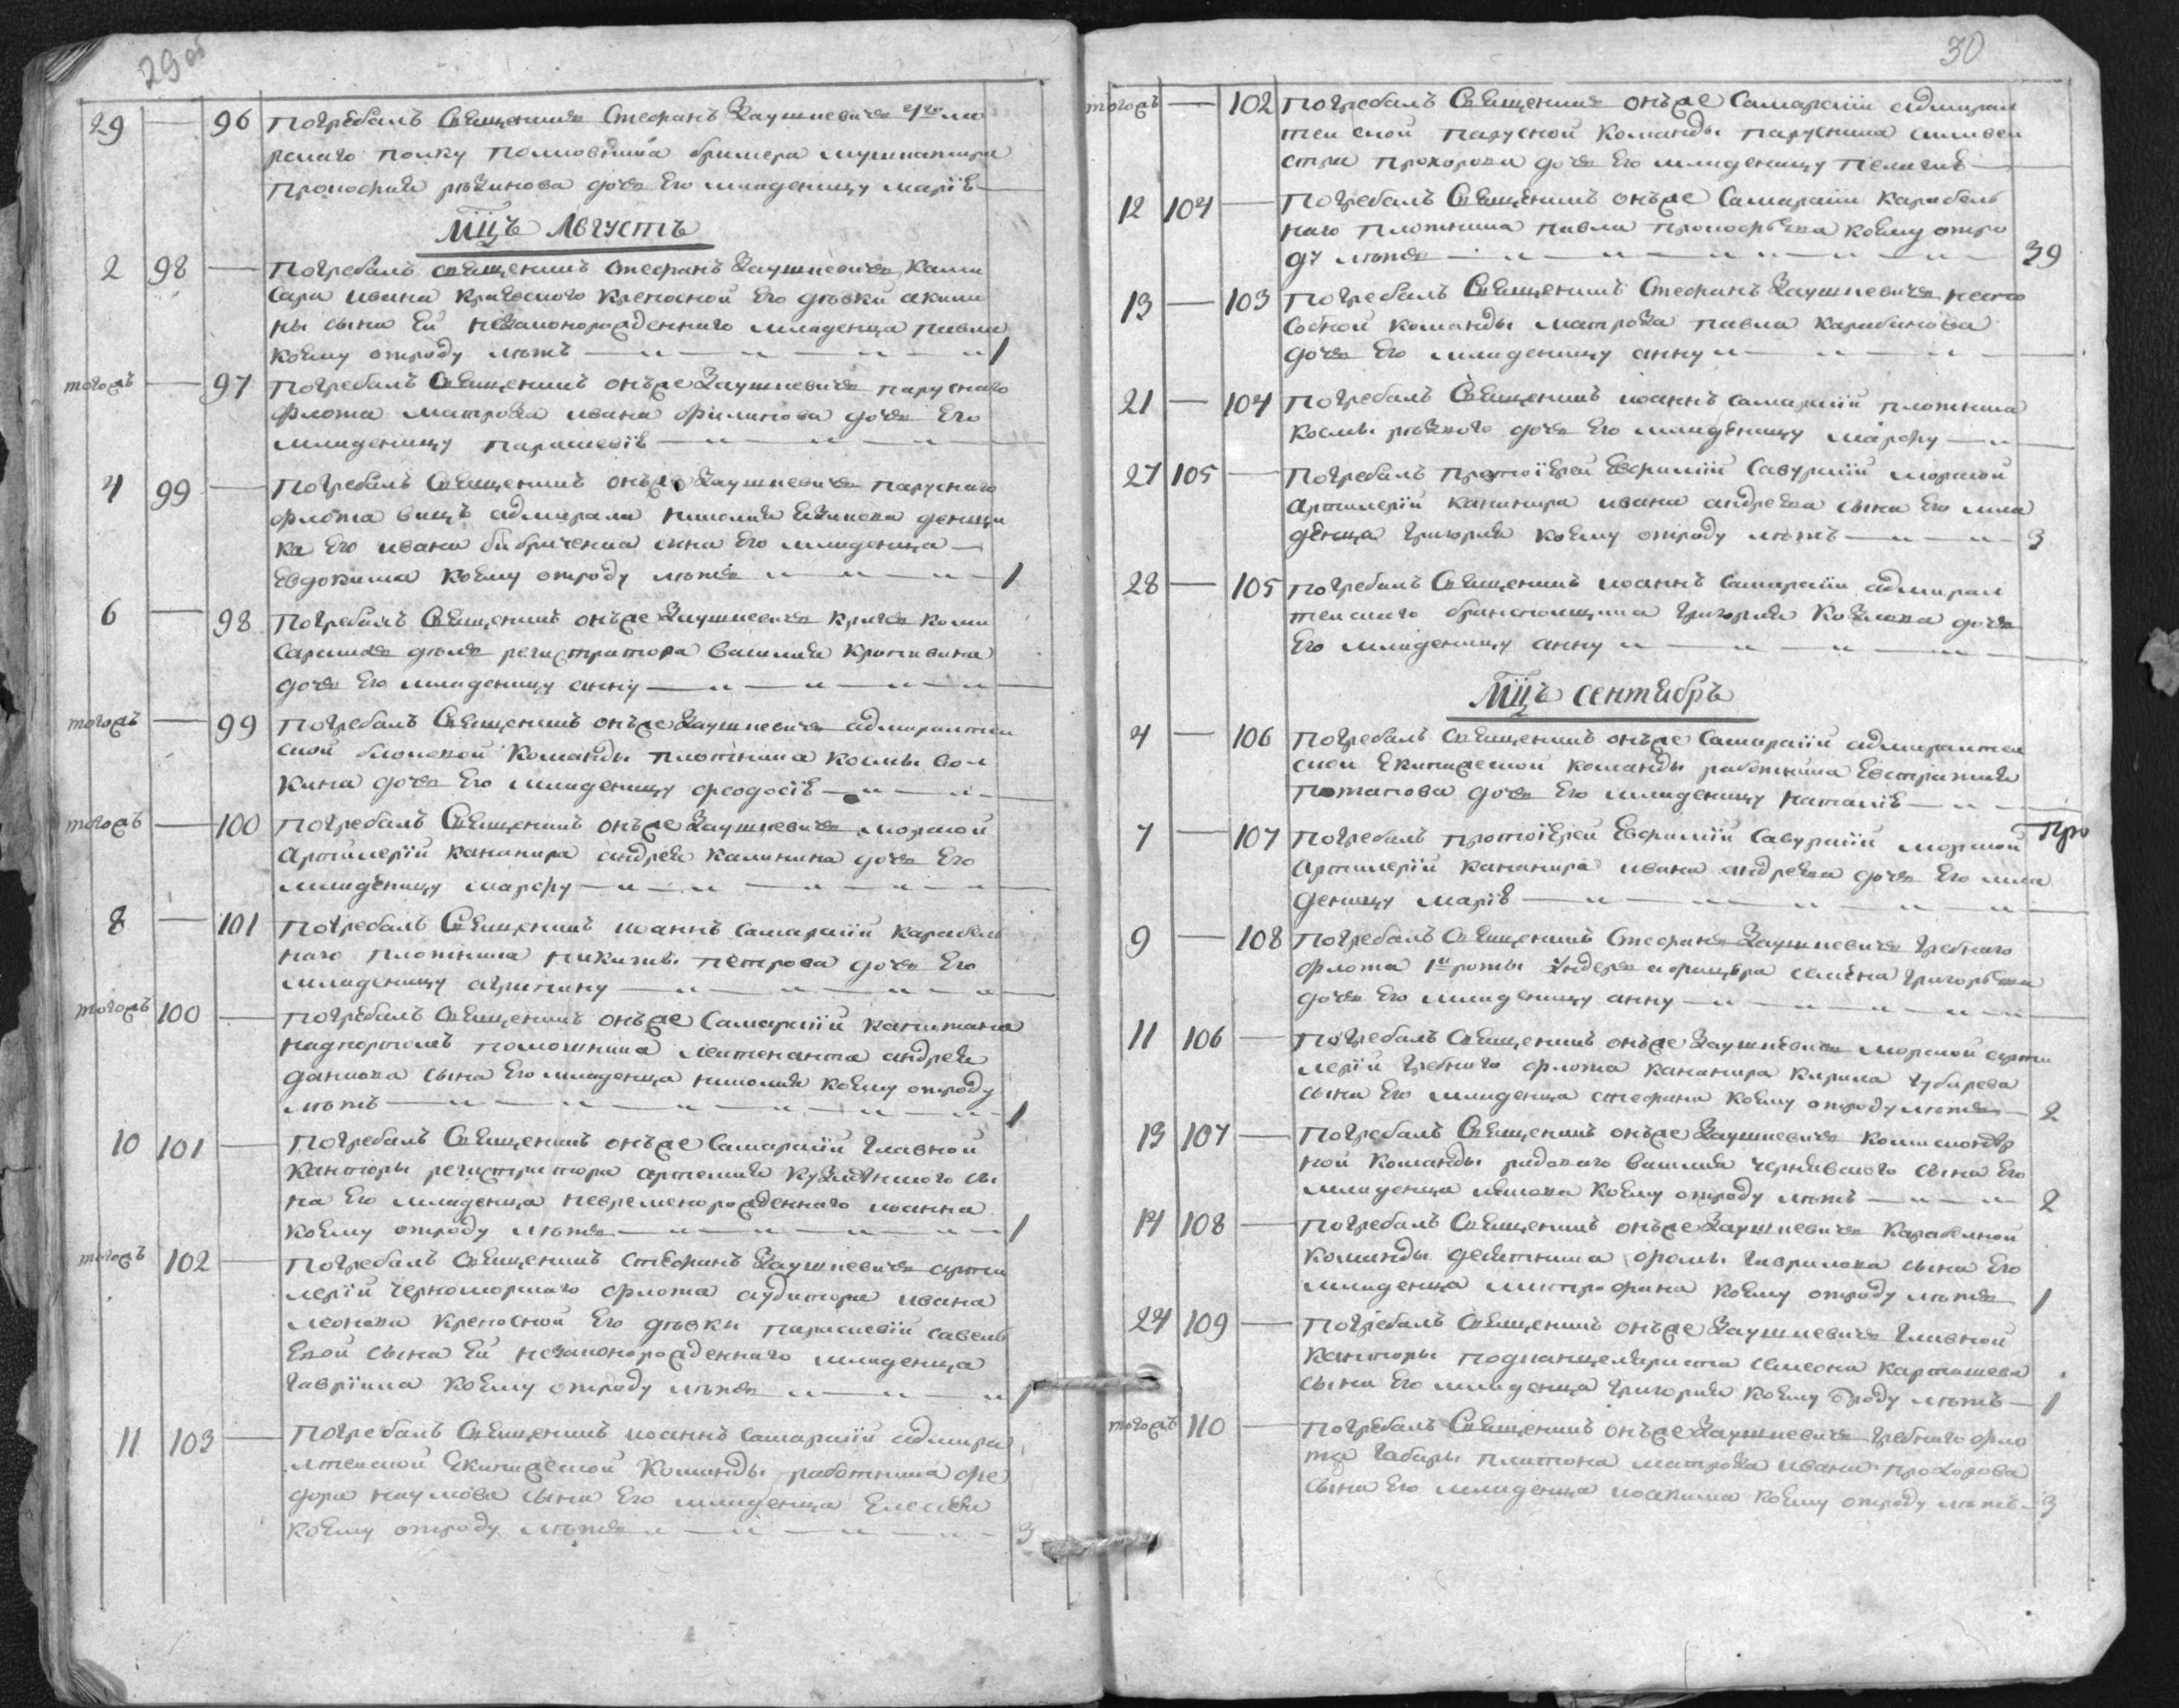 29 об
29 — 96 Погребалъ Священникъ Стефанъ Заушкевичъ
полку полковника
Прокофия дочь Его младеницу Марiю —
Мцъ Августъ
2 98 — Погребалъ священникъ Стефанъ Заушкевичъ, Коми
сара ивана крепосной Его девки акили
ны сына Ей незаконорожденнаго младенца павла
коему отроду летъ — 1
тогожъ — 97 Погребалъ Священникъ онъже Заушкевичъ паруснаго
флота матроза ивана филипова дочь Его
младеницу парасковiю —
4 99 — Погребалъ Священникъ онъже Заушкевичъ паруснаго
флота вицъ адмирала николая денщи
ка Его ивана сина Его младенца —
Евдокима коему отроду летъ — 1
6 — 98 Погребалъ Священникъ онъже Заушкевичъ кригсъ коми
сарскихъ делъ регистратора василия
дочь Его младеницу анну —
тогожъ — 99 Погребалъ Священникъ онъже Заушкевичъ адмиралтей
ской блоковой команды плотника космы вол
кина дочь Его младеницу феодосiю —
тогожъ — 100 Погребалъ Священникъ онъже Заушкевичъ морской
Артилерiи канонира андрея калинина дочь Его
младеницу марфу —
8 — 101 Погребалъ Священникъ иоаннъ самарскiй карабель
наго плотника никиты петрова дочь Его
младеницу агрипину —
тогожъ 100 — Погребалъ Священникъ онъже Самарскiй капитана
надпортомъ помошника лейтенанта андрея
данкова сына Его младенца николая коему отроду
летъ — 1
10 101 — Погребалъ Священникъ онъже Самарскiй главной
канторы регистратора артемия сы
на Его младенца невременорожденнаго иоанна
коему отроду летъ — 1
тогожъ 102 — Погребалъ Священникъ Стефанъ Заушкевичъ арти
лерiи черноморскаго флота аудитора ивана
леонова крепосной Его девки параскевiи савель
Евой сына Ей незаконорожденнаго младенца
гаврiила коему отроду летъ — 1
11 103 — Погребалъ Священникъ иоаннъ самарскiй адмира
лтейской Екипажеской команды работника фе
дора наумова сына Его младенца Елесея
коему отроду летъ — 3
30
тогожъ — 102 Погребалъ Священникъ онъже Самарскiй адмирал
тейской парусной команды парусника силвей
стра прохорова дочь Его младеницу пелагию —
12 104 — Погребалъ Священникъ онъже Самарскiй карабель
наго плотника павла прокофьева коему отро
ду летъ — 39
13 — 103 Погребалъ Священникъ Стефанъ Заушкевичъ неспо
собной команды матроза павла карабанова
дочь Его младеницу анну —
21 — 104 Погребалъ Священникъ иоаннъ самарскiй плотника
космы дочь Его младеницу марфу —
27 105 — Погребалъ протоiерей Евфимiй Савурскiй морской
артилерiи канонира ивана андреева сына Его мла
денца григория коему отроду летъ — 3
28 — 105 Погребалъ Священникъ иоаннъ самарскiй адмирал
тейскаго григория козлова дочь
Его младеницу анну —
Мцъ сентябръ
4 — 106 Погребалъ Священникъ онъже Самарскiй адмиралтей
ской Екипажеской команды работника Евстратия
Потапова дочь Его младеницу наталiю —
7 — 107 Погребалъ протоiерей Евфимiй Савурскiй морской
Артилерiи канонира ивана андреева дочь Его мла
деницу марiю —
9 — 108 Погребалъ Священникъ Стефанъ Заушкевичъ гребнаго
флота 1й роты ундеръ афицера семёна григорьева
дочь Его младеницу анну —
11 106 — Погребалъ Священникъ онъже Заушкевичъ морской арти
лерiи гребнаго флота канонира кирила губарева
сына Его младенца стефана коему отроду летъ — 2
13 107 — Погребалъ Священникъ онъже Заушкевичъ
ной команды рядоваго василия чернявского сына Его
младенца иякова коему отроду летъ — 2
14 108 — Погребалъ Священникъ онъже Заушкевичъ карабелной
команды десятника фомы гаврилова сына Его
младенца митрофана коему отроду летъ 1
24 109 — Погребалъ Священникъ онъже Заушкевичъ главной
канторы подканцеляриста семеона карташева
сына Его младенца григория коему отроду летъ — 1
тогожъ 110 — Погребалъ Священникъ онъже Заушкевичъ гребнаго фло
та габары платона матроза ивана прохорова
сына Его младенца иоакима коему отроду летъ — 3